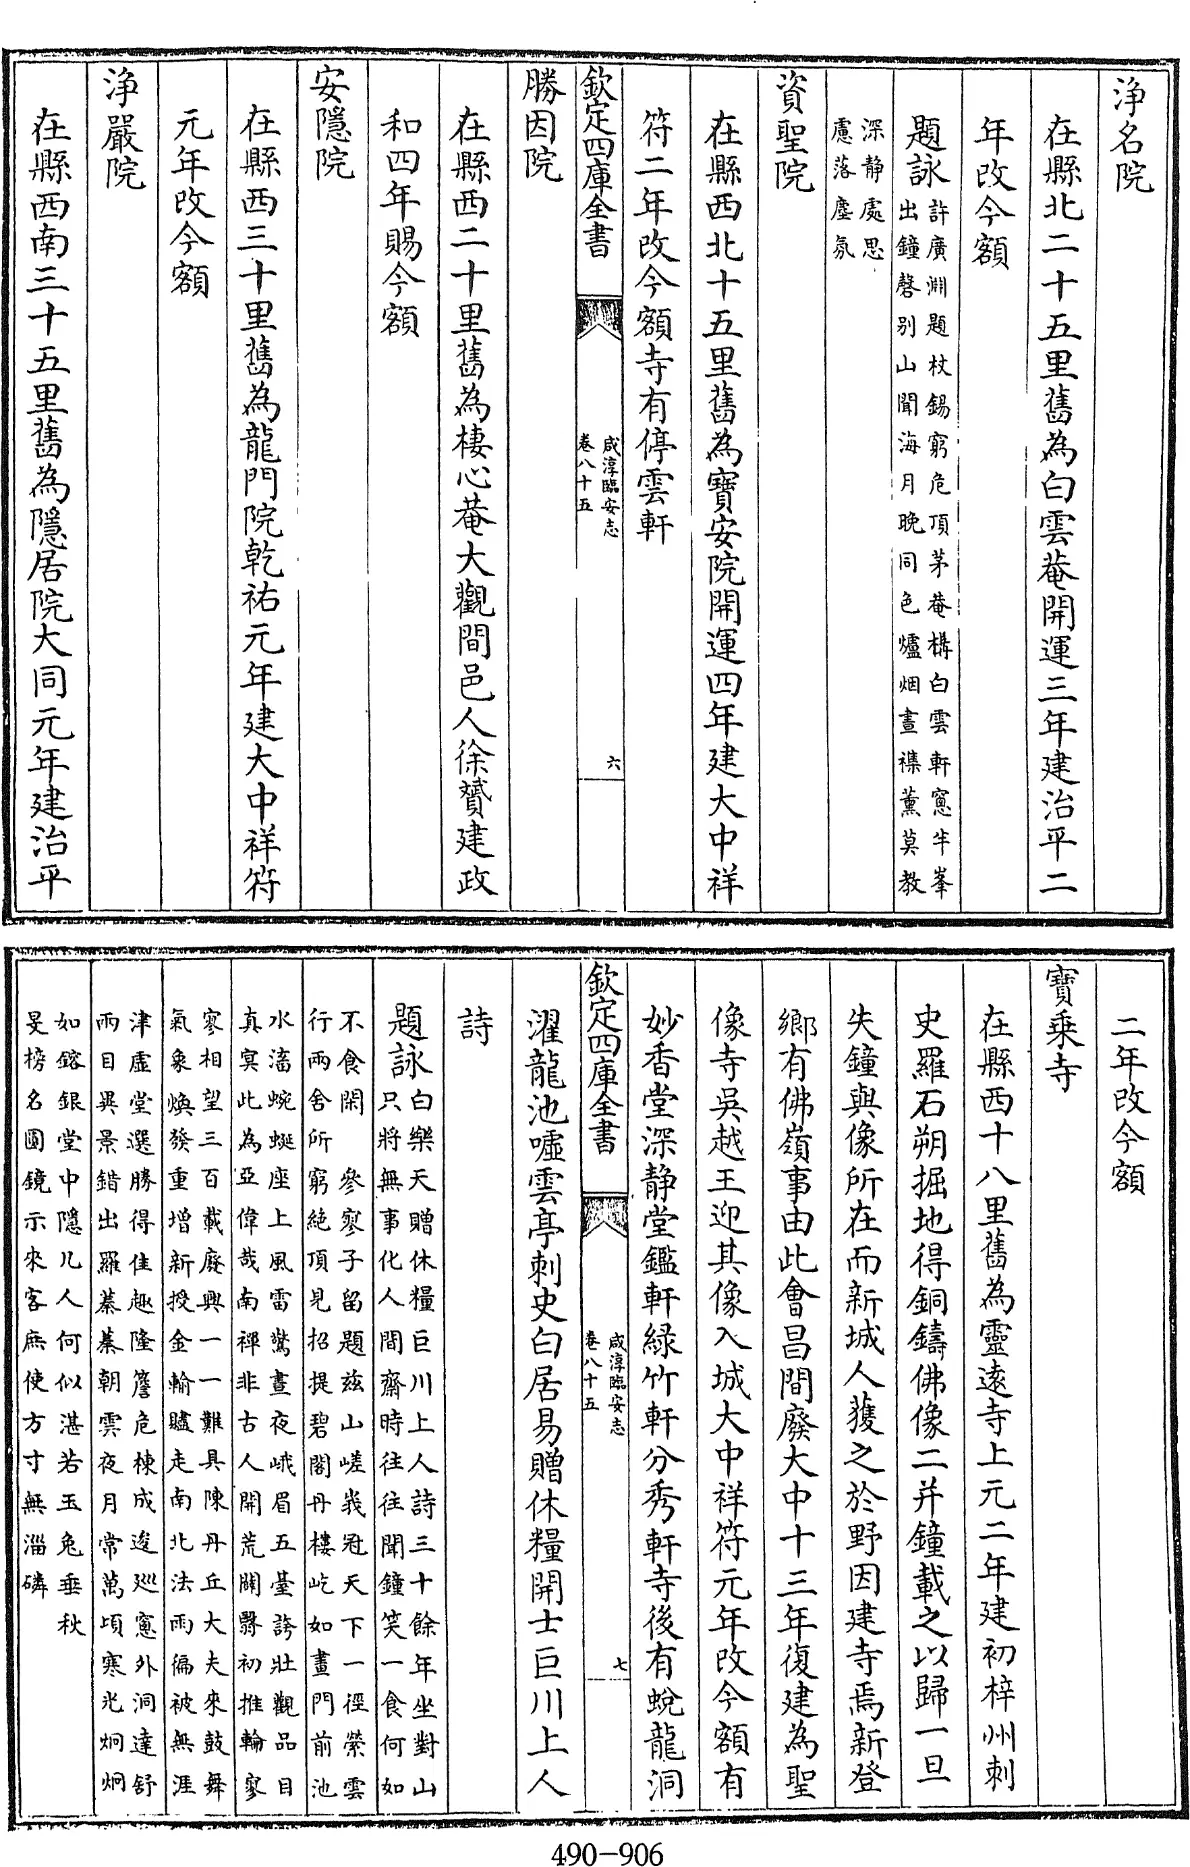 淨名院
在縣北二十五里舊為白雲菴開運三年建治平二
年改今額
題詠許廣淵題杖錫窮危頂茅菴構白雲軒窻半峯
出鐘磬别山聞海月晚同色爐烟晝襍薫莫教
深静處思
慮落塵氛
資聖院
在縣西北十五里舊為寶安院開運四年建大中祥
符二年改今額寺有停雲軒
欽定四庫全書
咸淳臨安志
卷八十五
六
勝因院
在縣西二十里舊為棲心菴大觀間邑人徐贇建政
和四年賜今額
安隱院
在縣西三十里舊為龍門院乾祐元年建大中祥符
元年改今額
淨嚴院
在縣西南三十五里舊為隱居院大同元年建治平
二年改今額
寶乗寺
在縣西十八里舊為靈遠寺上元二年建初梓州刺
史羅石朔掘地得銅鑄佛像二并鐘載之以歸一旦
失鐘與像所在而新城人獲之於野因建寺焉新登
鄉有佛嶺事由此會昌間廢大中十三年復建為聖
像寺吳越王迎其像入城大中祥符元年改今額有
妙香堂深静堂鑑軒緑竹軒分秀軒寺後有蛻龍洞
欽定四庫全書
咸淳臨安志
卷八十五
七
濯龍池嘘雲亭刺史白居易贈休糧開士巨川上人
詩
題詠白樂天贈休糧巨川上人詩三十餘年坐對山
只將無事化人間齋時往往聞鐘笑一食何如
不食閑　參寥子留題兹山嵯峩冠天下一徑縈雲
行兩舍所窮絶頂見招提碧閣丹樓屹如畫門前池
水濤蜿蜒座上風雷驚晝夜峨眉五臺誇壯觀品目
真寞此為亞偉哉南禪非古人開荒闢翳初推輪寥
寥相望三百載廢興一一難具陳丹丘大夫來鼓舞
氣象煥發重増新授金輸驢走南北法雨徧被無涯
津虛堂選勝得佳趣隆簷危棟成逡廵窻外洞達舒
兩目異景錯出羅蓁蓁朝雲夜月常萬頃寒光炯炯
如鎔銀堂中隱几人何似湛若玉兔垂秋
旻榜名圓鏡示來客庶使方寸無淄磷
490-906